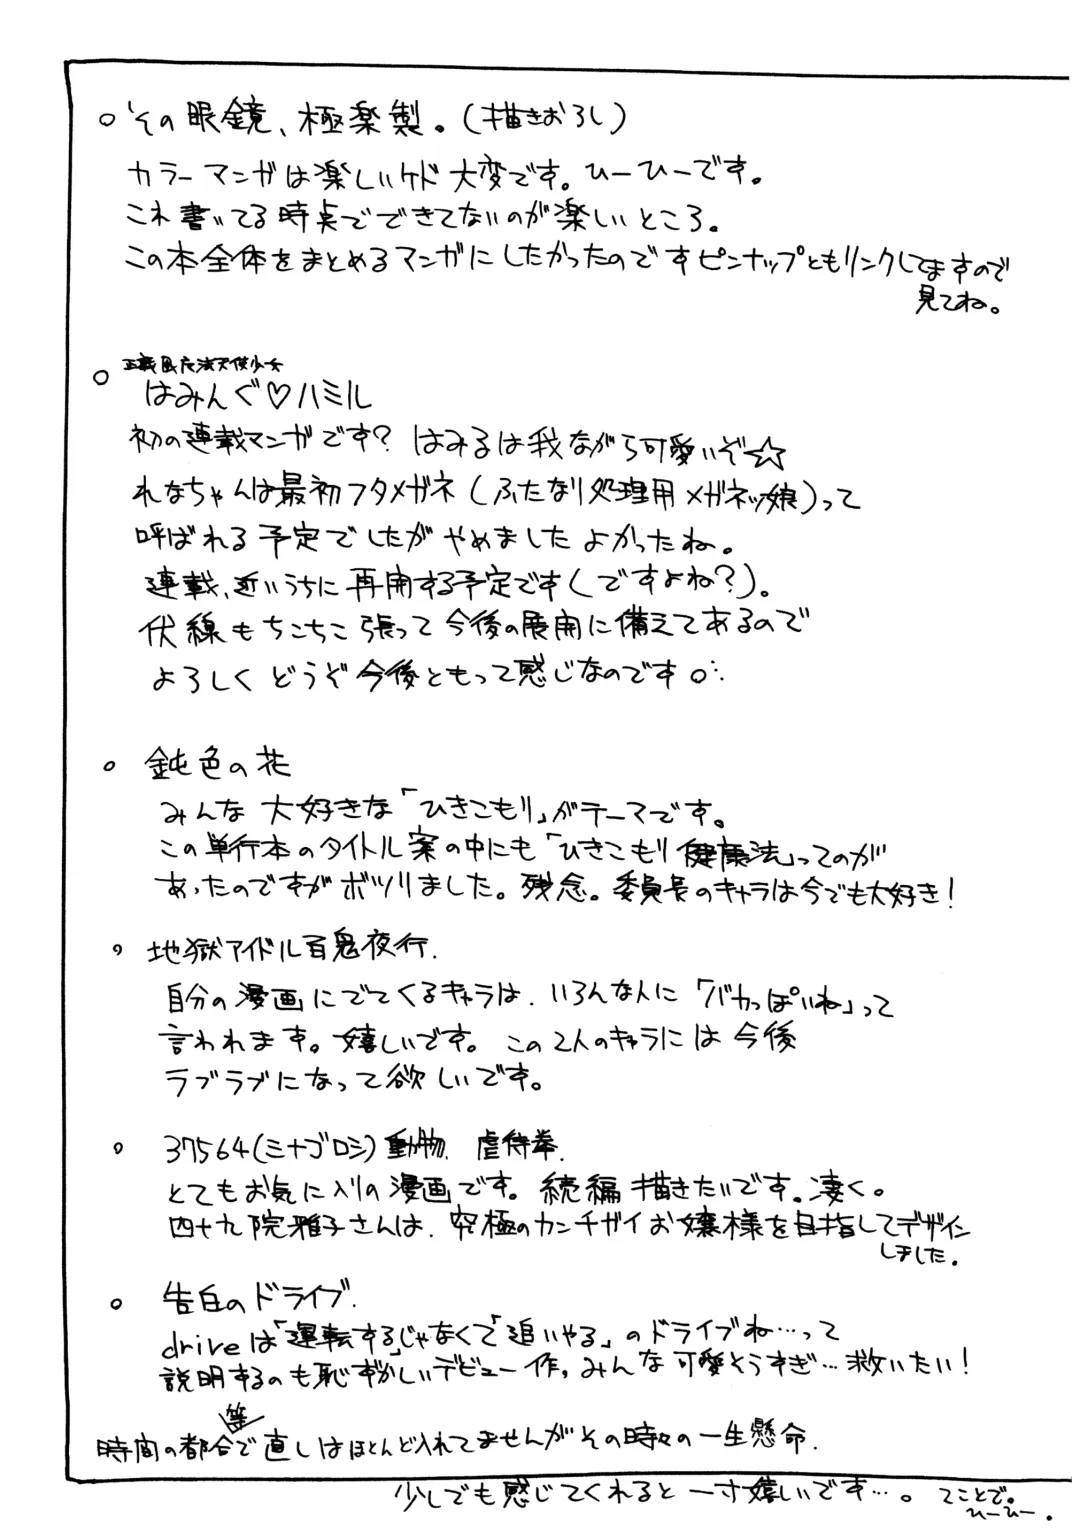 ○その眼鏡、極楽製。(描きおろし)
カラーマンガは楽しいケド大変です。ひーひーです。
これ書いてる時点でできてないのが楽しいところ。
この本全体をまとめるマンガにしたかったのですピンナップともリンクしてますので
見てね。
天使少女
○はみんぐ♡ハミル
初の連載マンガです? はみるは我ながら可愛いぞ☆
れなちゃんは最初フタメガネ(ふたなり処理用メガネッ娘)って
呼ばれる予定でしたがやめましたよかったね。
連載、近いうちに再開する予定です(ですよね?)。
伏線もちこちこ張って今後の展開に備えてあるので
よろしくどうぞ今後ともって感じなのです
○鈍色の花
みんな大好きな「ひきこもり」がテーマです。
この単行本のタイトル案の中にも「ひきこもり健康法」ってのが
あったのですがボツりました。残念。委員長のキャラは今でも大好き!
○地獄アイドル百鬼夜行.
自分の漫画にでてくるキャラは、いろんな人に「バカっぽいね」って
言われます。嬉しいです。この2人のキャラには今後
ラブラブになって欲しいです。
○37564(ミナゴロシ)動物 虐待拳.
とてもお気に入りの漫画です。続編描きたいです。凄く。
四十九院雅子さんは、究極のカンチガイお嬢様を目指してデザイン
しました。
○告白のドライブ.
driveは「運転する」じゃなくて「追いやる」のドライブね…って
説明するのも恥ずかしいデビュー作。みんな可愛そうすぎ…救いたい!
時間の都合等で直しはほとんど入れてませんがその時々の一生懸命.
少しでも感じてくれると一寸嬉しいです…。てことで。
ひーひー.